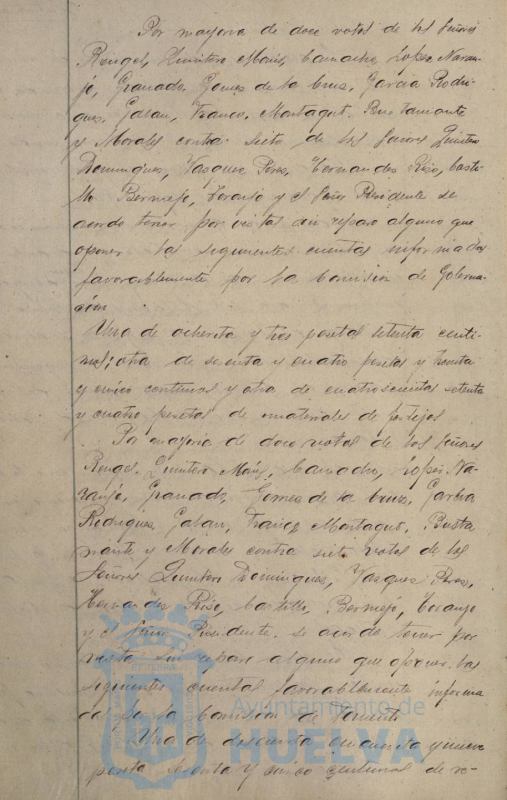 Por mayoria de doce votos de los Señores
Rengel, Quintero Máis, Camacho, López Naran-
jo, Granado, Gomez de la Cruz, Garcia Rodri-
guez, Galan, Franco, Montagut, Bustamante
y Morales contra siete de los Señores Quintero
Dominguez, Vazquez Perez, Hernandez Riso, Casti-
llo Bermejo, Toranjo y el Señor Presidente se
acordo tener por vistas sin reparo alguno que
oponer las siguientes cuentas informadas
favorablemente por la Comision de Goberna-
cion.
Una de ochenta y tres pesetas setenta centi-
mos; otra de setenta y cuatro pesetas y treinta
y cinco centimos y otra de cuatrocientas setenta
y cuatro pesetas de materiales de festejos
Por mayoria de doce votos de los Señores
Rengel, Quintero Máis, Camacho, López Na-
ranjo, Granado, Gomez de la Cruz, Garcia
Rodriguez, Galan, Franco, Montagut, Busta
mante y Morales contra siete votos de los
Señores Quintero Dominguez, Vazquez Perez,
Hernandez Riso, Castillo, Bermejo, Toranjo
y el Señor Presidente se acordo tener por
vista sin reparo alguno que oponer las
siguientes cuentas favorablemente informa
das por la Comision de Fomento
Una de doscientas cincuenta y nueve
pesetas y cinco centimos de re-
Ayuntamiento de
HUELVA